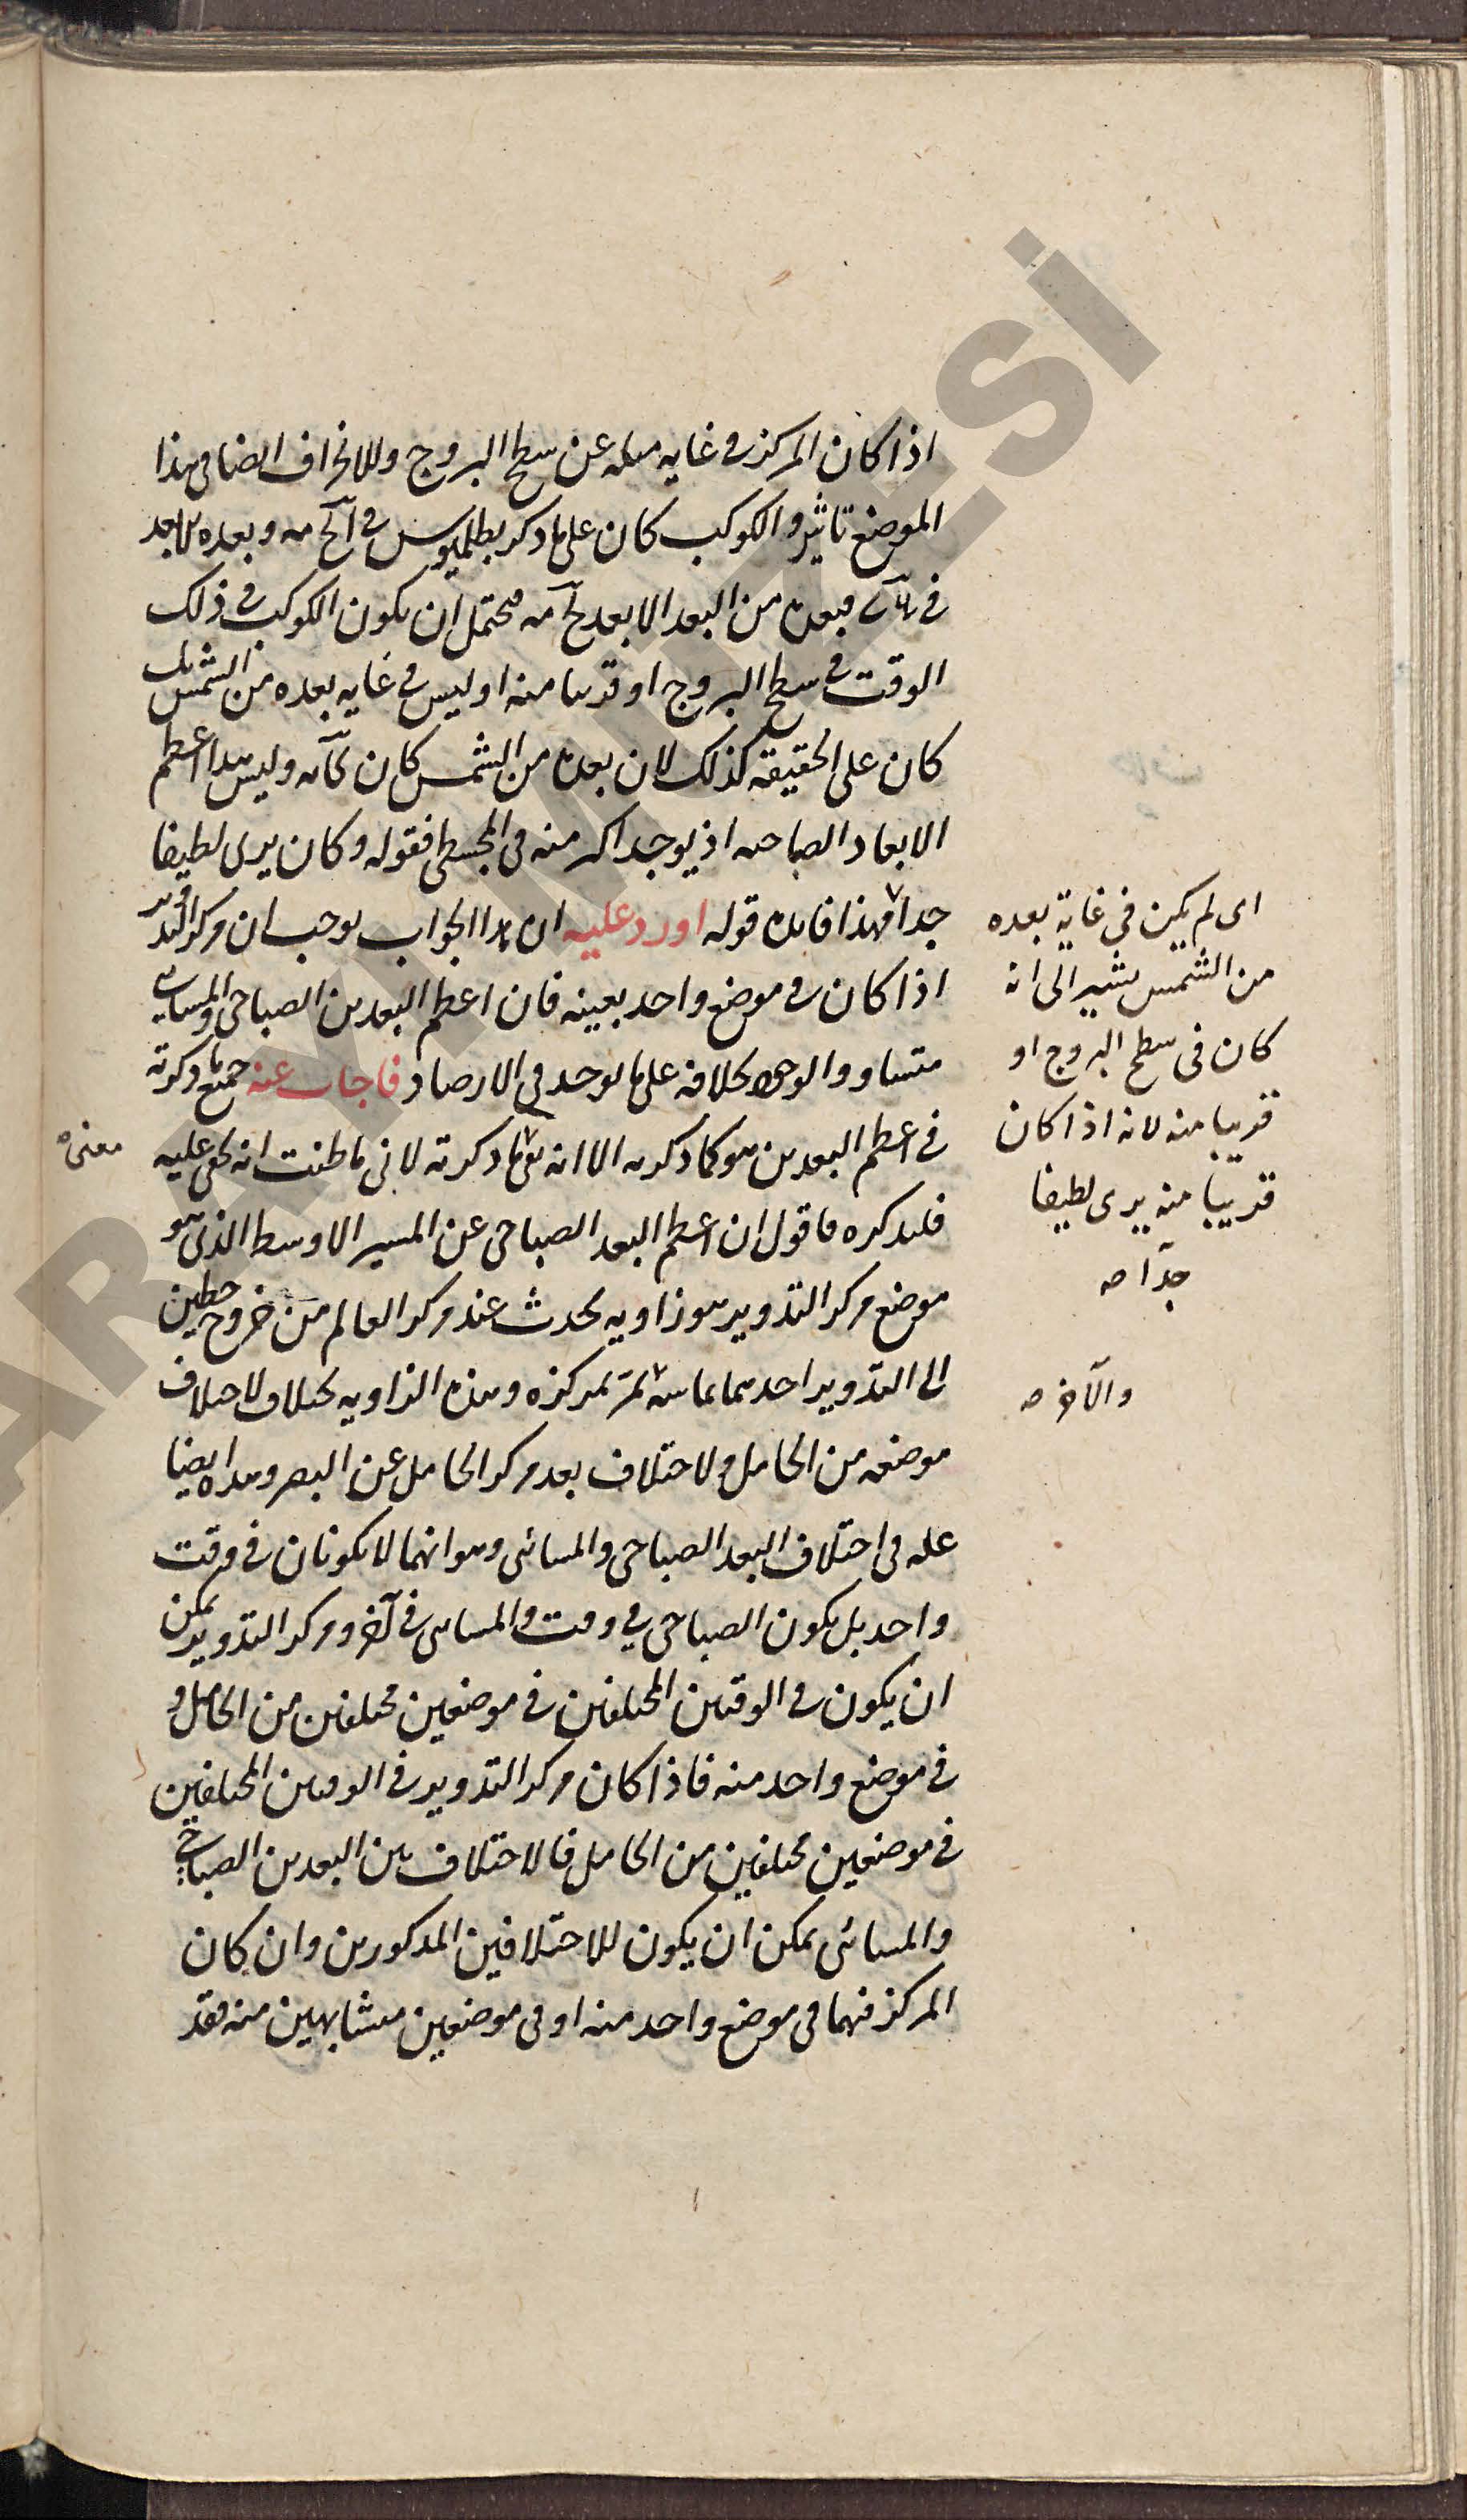 اذا كان المركز فى غايه ميله عن سطح البروج وللانحراف ايضا فى هذا
الموضع تاثير والكوكب كان على ما ذكر بطلميوس فى وبعده الابعد
فى فبعده من البعد الابعد فيحتمل ان يكون الكوكب فى ذلك
الوقت فى سطح البروج او قريبا منه او ليس فى غايه بعده من الشمس بل
كان على الحقيقه كذلك لان بعده من الشمس كان وليس هذا اعظم
الابعاد الصباحيه اذ يوجد اكبر منه فى المجسطى فقوله وكان يرى لطيفا
جدا فهذا فايده قوله اورد عليه ان هذا الجواب يوجب ان مركز التدوير
اذا كان فى موضع واحد بعينه فان اعظم البعدين الصباحى والمسائى
متساو والوجود بخلافه على ما يوجد فى الارصاد فاجاب عنه جميع ما ذكرته
فى اعظم البعدين هو كما ذكرته الا انه بقى ما ذكرته لانى ما ظننت انه يخفى عليه
فلنذكره فاقول ان اعظم البعد الصباحى عن المسير الاوسط الذى هو
موضع مركز التدوير هو زاويه يحدث عند مركز العالم من خروج خطين
الى التدوير احدهما يماسه يمر بمركزه وهذه الزاويه يختلف لاختلاف
موضعه من الحامل ولاختلاف بعد مركز الحامل عن البصر وهذه ايضا
عله فى اختلاف البعد الصباحى والمسائى وهو انهما لا يكونان فى وقت
واحد بل يكون الصباحى فى وقت والمسائى فى آخر ومركز التدوير يمكن
ان يكون فى الوقتين المختلفين فى موضعين مختلفين من الحامل او
فى موضع واحد منه فاذا كان مركز التدوير فى الوقتين المختلفين
فى موضعين مختلفين من الحامل فالاختلاف بين البعدين الصباحى
والمسائى يمكن ان يكون للاختلافين المذكورين وان كان
المركز فيهما فى موضع واحد منه او فى موضعين متشابهين منه فقد
اى لم يكن فى غاية بعده
من الشمس يشير الى انه
كان فى سطح البروج او
قريبا منه لانه اذا كان
قريبا منه يرى لطيفا
جدا صه
والآخر صه
معنى